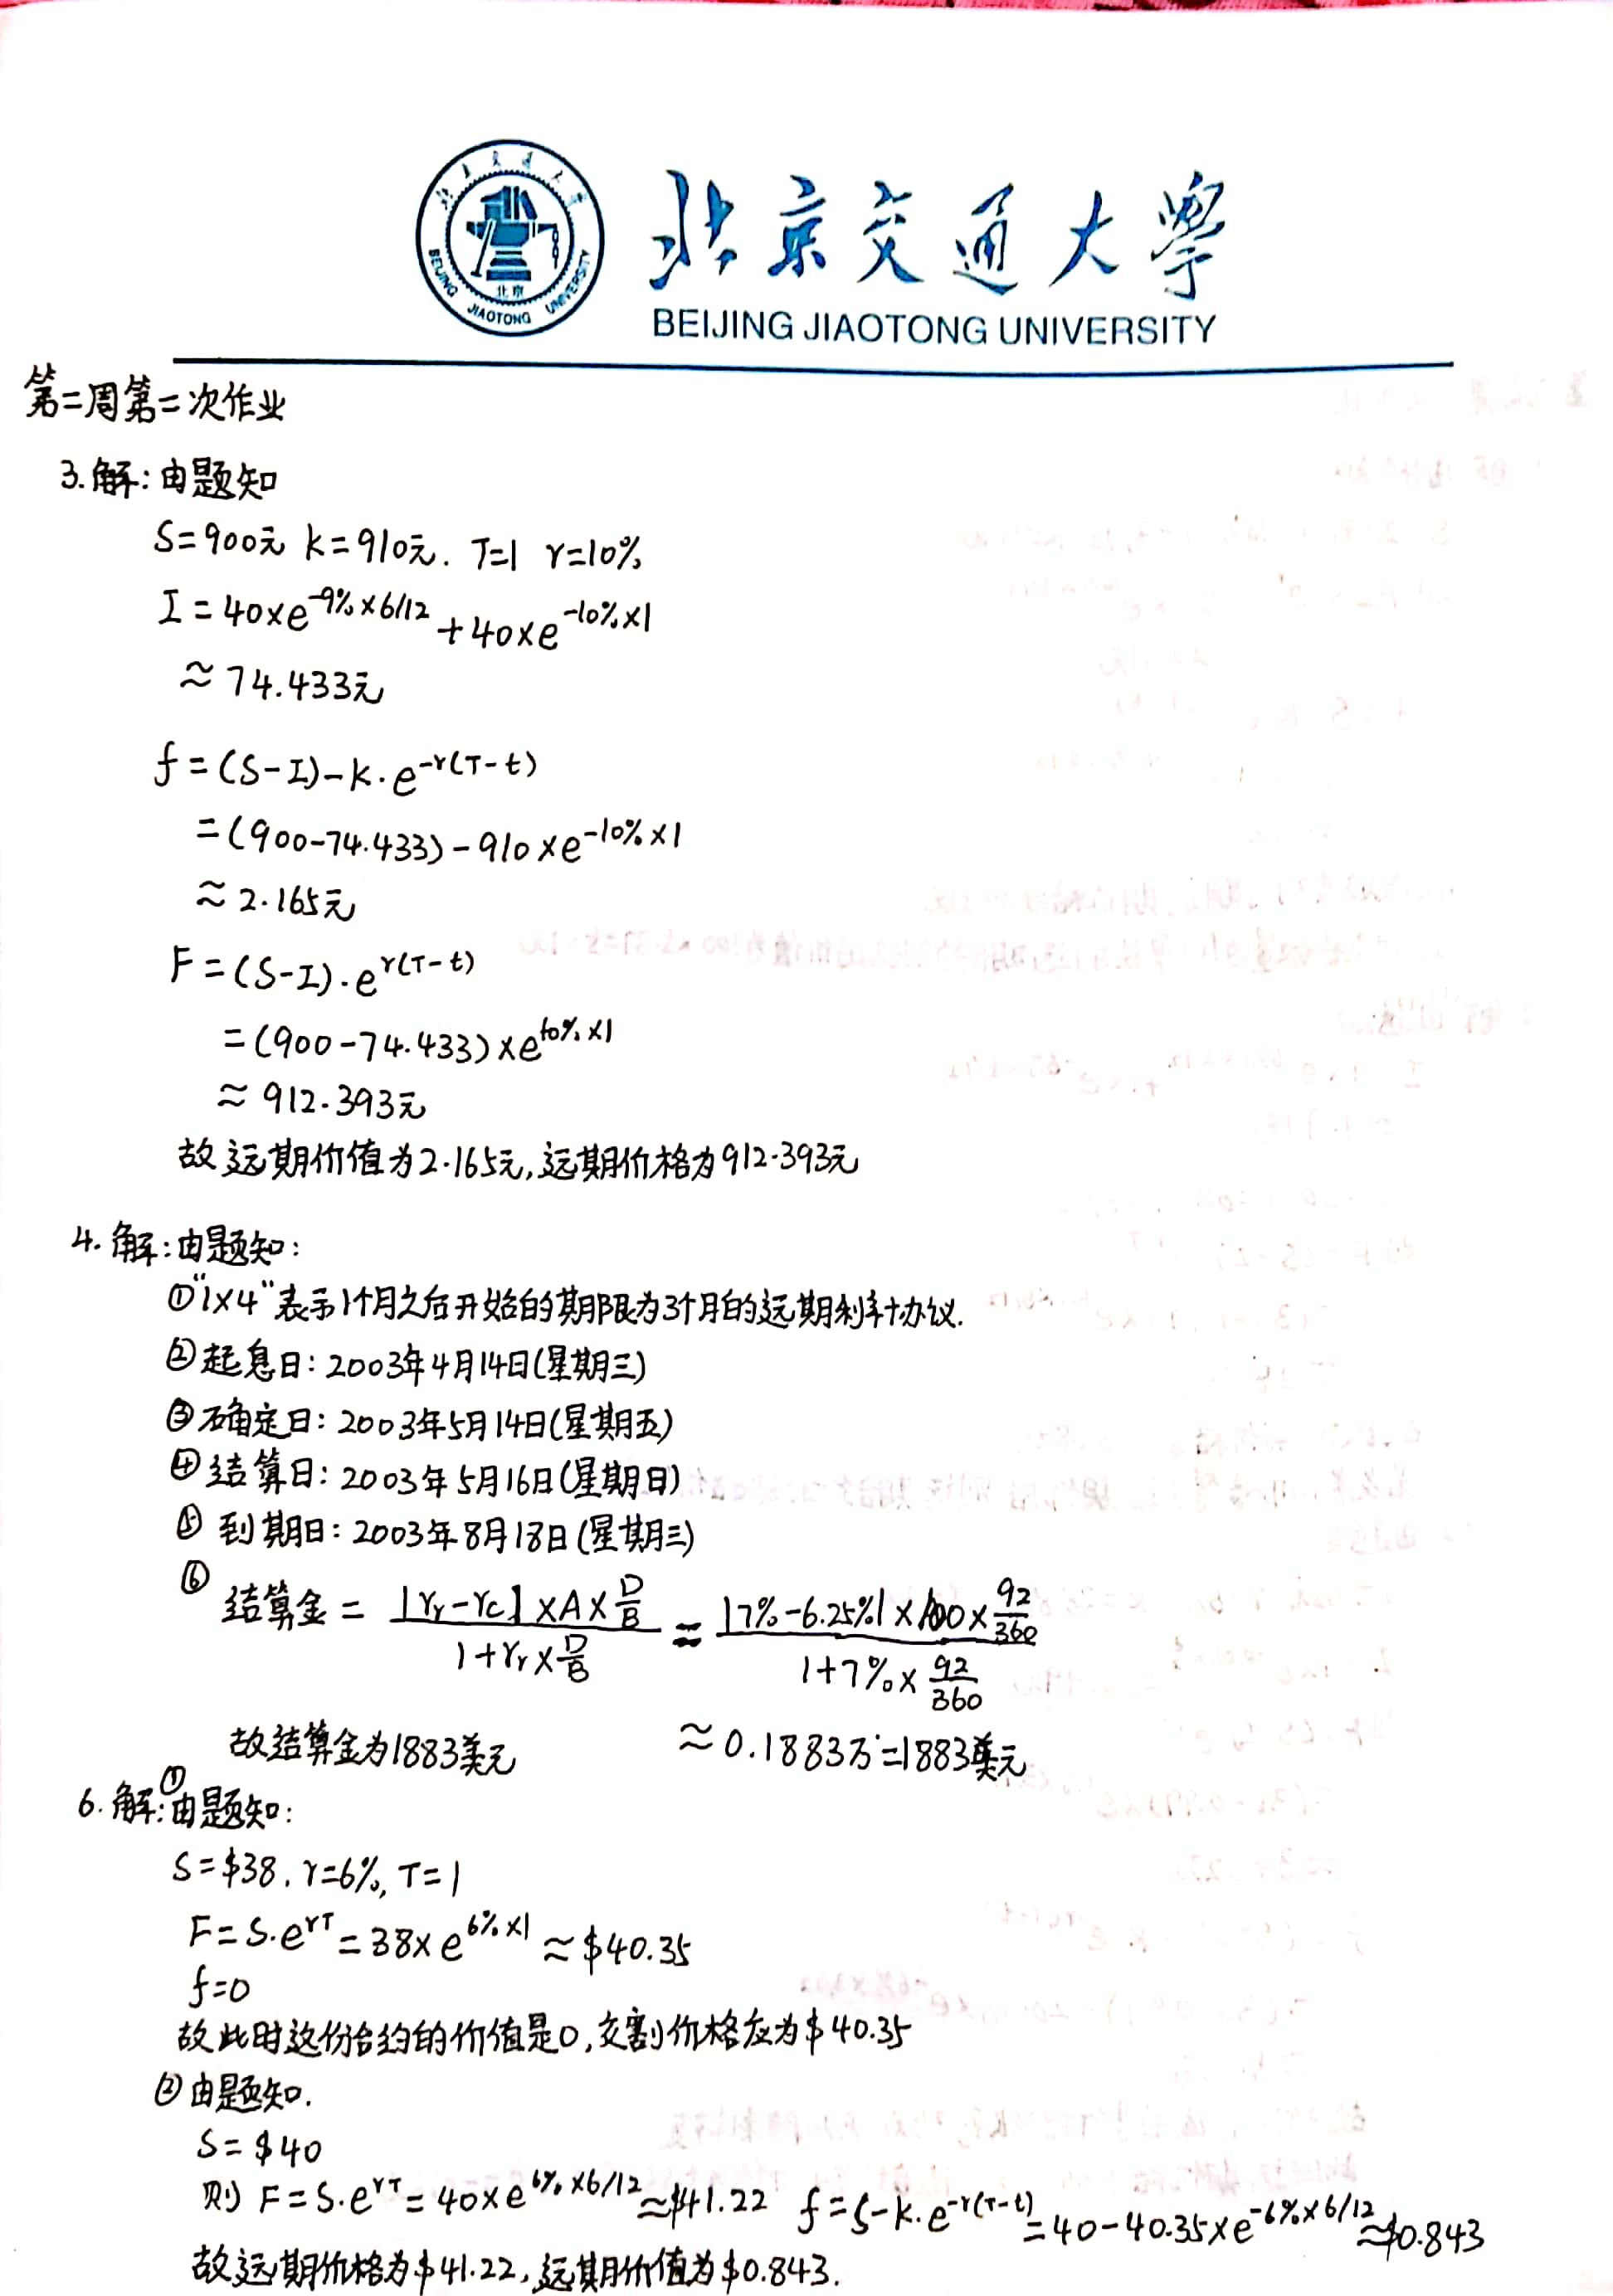 北京交通大學
BEIJING JIAOTONG UNIVERSITY
北京
BEIJING JIAOTONG UNIVERSITY
第二周第二次作业
3.解:由题知
S=900元 K=910元. T=1 r=10%
I=40×e^{-9%×6/12}+40×e^{-10%×1}
≈74.433元
f=(S-I)-K·e^{-r(T-t)}
=(900-74.433)-910×e^{-10%×1}
≈2.165元
F=(S-I)·e^{r(T-t)}
=(900-74.433)×e^{10%×1}
≈912.393元
故远期价值为2.165元,远期价格为912.393元
4.解:由题知:
①"1×4"表示1个月之后开始的期限为3个月的远期利率协议.
②起息日:2003年4月14日(星期三)
③确定日:2003年5月14日(星期五)
④结算日:2003年5月16日(星期日)
⑤到期日:2003年8月18日(星期三)
⑥结算金=\frac{|r_r-r_c|×A×\frac{D}{B}}{1+r_r×\frac{D}{B}}=\frac{|7%-6.25%|×100×\frac{92}{360}}{1+7%×\frac{92}{360}}
故结算金为1883美元 ≈0.1883万=1883美元
6.解:①由题知:
S=$38,r=6%,T=1
F=S·e^{rT}=38×e^{6%×1}≈$40.35
f=0
故此时这份合约的价值是0,交割价格应为$40.35
②由题知.
S=$40
则F=S·e^{rT}=40×e^{6%×6/12}≈$41.22 f=S-K·e^{-r(T-t)}=40-40.35×e^{-6%×6/12}≈$0.843
故远期价格为$41.22,远期价值为$0.843.